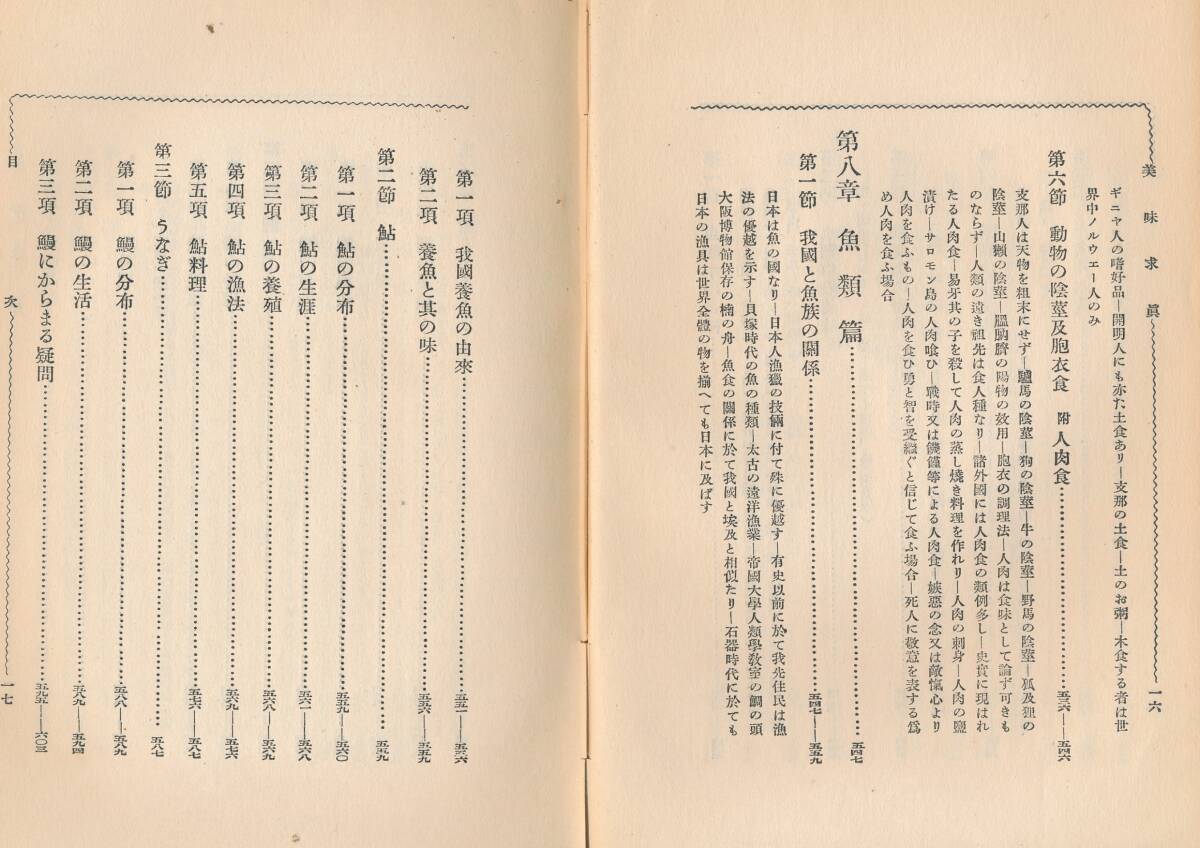 美味求眞
一六
ギニヤ人の嗜好品―開明人にも亦た土食あり―支那の土食―土のお粥―木食する者は世
界中ノルウエー人のみ
第六節　動物の陰莖及胞衣食　附　人肉食…………五三六―五四六
支那人は天物を粗末にせず―驢馬の陰莖―狗の陰莖―牛の陰莖―野馬の陰莖―狐及狸の
陰莖―山獺の陰莖―膃肭臍の陽物の效用―胞衣の調理法―人肉は食味として論ず可きも
のならず―人類の遠き祖先は食人種なり―諸外國には人肉食の類例多し―史實に現はれ
たる人肉食―易牙其の子を殺して人肉の蒸し燒き料理を作れり―人肉の刺身―人肉の鹽
漬け―サロモン島の人肉喰ひ―戰時又は饑饉等による人肉食―嫉惡の念又は敵愾心より
人肉を食ふもの―人肉を食ひ勇と智を受繼ぐと信じて食ふ場合―死人に敬意を表する爲
め人肉を食ふ場合
第八章　魚類篇…………五四七
第一節　我國と魚族の關係…………五四七―五五九
日本は魚の國なり―日本人漁獵の技倆に付て殊に優越す―有史以前に於て我先住民は漁
法の優越を示す―貝塚時代の魚の種類―太古の遠洋漁業―帝國大學人類學敎室の鯛の頭
大阪博物館保存の楠の舟―魚食の關係に於て我國と埃及と相似たり―石器時代に於ても
日本の漁具は世界全體の物を揃へても日本に及ばす
第一項　我國養魚の由來…………五五一―五五六
第二項　養魚と其の味…………五五六―五五九
第二節　鮎…………五五九
第一項　鮎の分布…………五五九―五六〇
第二項　鮎の生涯…………五六一―五六八
第三項　鮎の養殖…………五六八―五七六
第四項　鮎の漁法…………五七六
第五項　鮎料理…………五七六―五八七
第三節　うなぎ…………五八七
第一項　鰻の分布…………五八八―五八九
第二項　鰻の生活…………五八九―五九四
第三項　鰻にからまる疑問…………五九五―六〇三
目次
一七